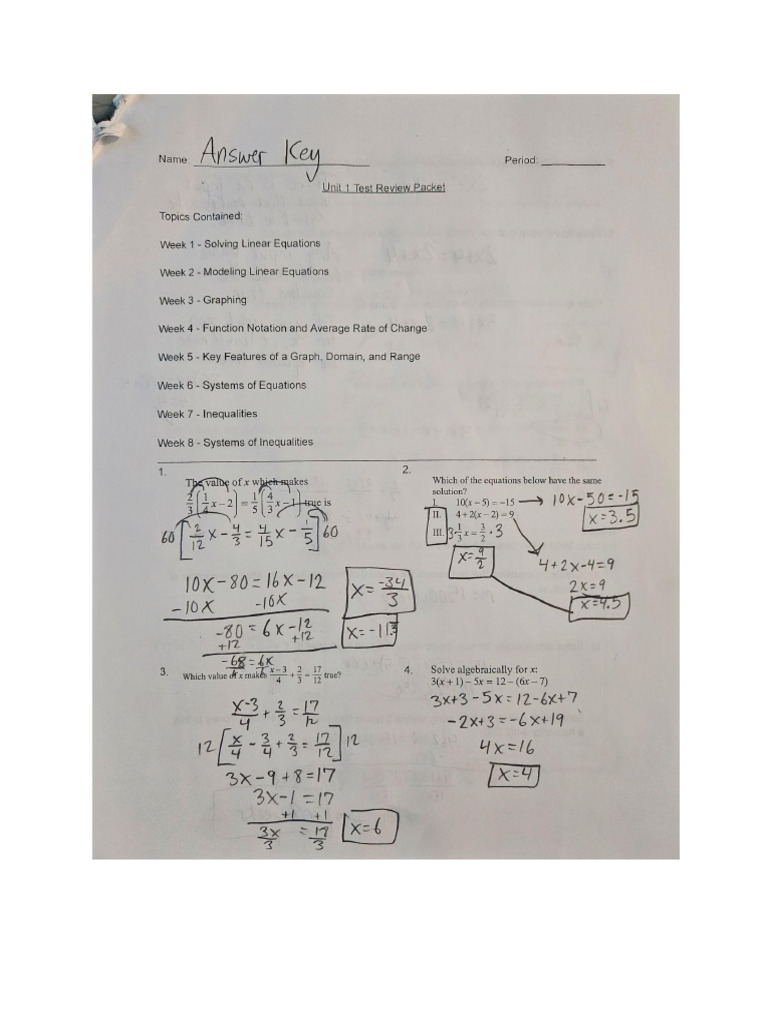 Name Answer Key Period:
Unit 1 Test Review Packet
Topics Contained:
Week 1 - Solving Linear Equations
Week 2 - Modeling Linear Equations
Week 3 - Graphing
Week 4 - Function Notation and Average Rate of Change
Week 5 - Key Features of a Graph, Domain, and Range
Week 6 - Systems of Equations
Week 7 - Inequalities
Week 8 - Systems of Inequalities
1.
The value of x which makes
2/3 (1/4 x − 2) = 1/5 (4/3 x − 1) true is
60 [2/12 x − 4/3 = 4/15 x − 1/5] 60
10x − 80 = 16x − 12
−10x −10x
−80 = 6x − 12
+12 +12
−68 = 6x
6 6
x = −34/3
x = −11.3
2.
Which of the equations below have the same
solution?
I. 10(x − 5) = −15 → 10x − 50 = −15
x = 3.5
II. 4 + 2(x − 2) = 9
III. 3 · 1/3 x = 3/2 · 3
x = 9/2
4 + 2x − 4 = 9
2x = 9
x = 4.5
3. Which value of x makes x − 3/4 + 2/3 = 17/12 true?
x − 3/4 + 2/3 = 17/12
12 [x/4 − 3/4 + 2/3 = 17/12] 12
3x − 9 + 8 = 17
3x − 1 = 17
+1 +1
3x/3 = 17/3
x = 6
4. Solve algebraically for x:
3(x + 1) − 5x = 12 − (6x − 7)
3x + 3 − 5x = 12 − 6x + 7
−2x + 3 = −6x + 19
4x = 16
x = 4